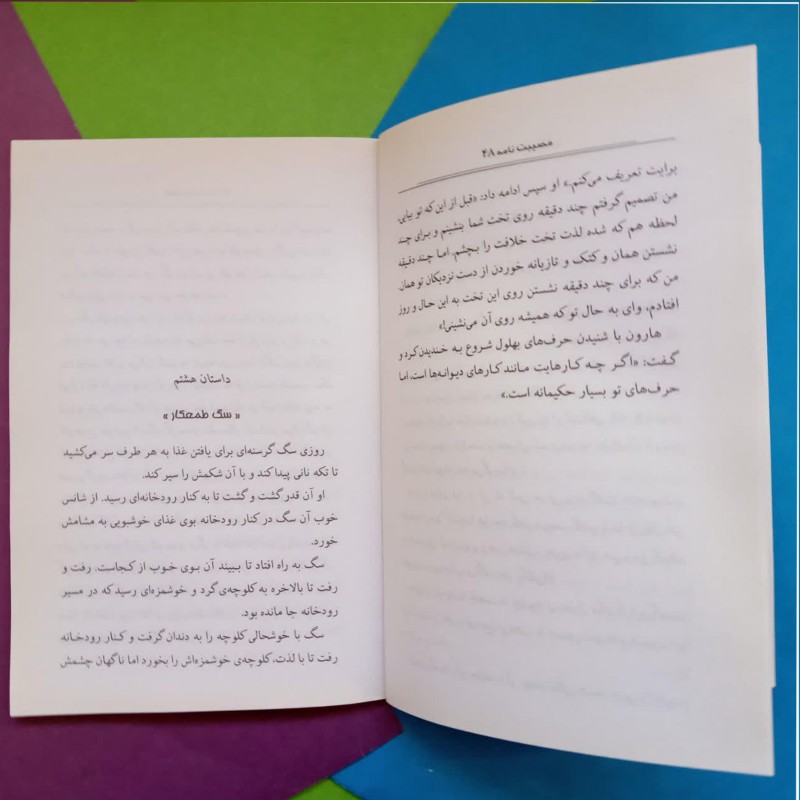 مصیبت نامه ۴۸
برایت تعریف می‌کنم.» او سپس ادامه داد: «قبل از این که تو بیایی،
من تصمیم گرفتم چند دقیقه روی تخت شما بنشینم و برای چند
لحظه هم که شده لذت تخت خلافت را بچشم. اما چند دقیقه
نشستن همان و کتک و تازیانه خوردن از دست نزدیکان تو همان.
من که برای چند دقیقه نشستن روی این تخت به این حال و روز
افتادم، وای به حال تو که همیشه روی آن می‌نشینی!»
هارون با شنیدن حرف‌های بهلول شروع به خندیدن کرد و
گفت: «اگر چه کارهایت مانند کارهای دیوانه‌ها است، اما
حرف‌های تو بسیار حکیمانه است.»
داستان هشتم
« سگ طمعکار »
روزی سگ گرسنه‌ای برای یافتن غذا به هر طرف سر می‌کشید
تا تکه نانی پیدا کند و با آن شکمش را سیر کند.
او آن قدر گشت و گشت تا به کنار رودخانه‌ای رسید. از شانس
خوب آن سگ در کنار رودخانه بوی غذای خوشبویی به مشامش
خورد.
سگ به راه افتاد تا ببیند آن بوی خوب از کجاست. رفت و
رفت تا بالاخره به کلوچه‌ی گرد و خوشمزه‌ای رسید که در مسیر
رودخانه جا مانده بود.
سگ با خوشحالی کلوچه را به دندان گرفت و کنار رودخانه
رفت تا با لذت، کلوچه‌ی خوشمزه‌اش را بخورد اما ناگهان چشمش